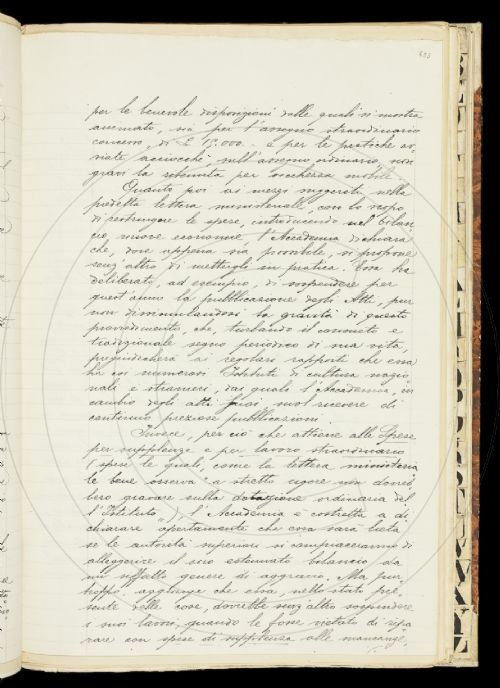 per le benevole disposizioni dalle quali si mostra
animato, sia per l'assegno straordinario
concesso, di £ 15.000. e per le pratiche av
viate acciocchè, sull'assegno ordinario, non
gravi la ritenuta per ricchezza mobile.
Quanto poi ai mezzi suggeriti nella
predetta lettera ministeriale, con lo scopo
di restringere le spese, introducendo nel bilan
cio nuove economie, l'Accademia dichiara
che, dove appena sia possibile, si propone
senz'altro di metterli in pratica. Essa ha
deliberato, ad esempio, di sospendere per
quest'anno la pubblicazione degli Atti, pur
non dissimulandosi la gravità di questo
provvedimento, che, turbando il consueto e
tradizionale segno periodico di sua vita,
pregiudicherà ai regolari rapporti che essa
ha coi numerosi Istituti di cultura nazio
nali e stranieri, dai quali l'Accademia, in
cambio degli atti suoi, suol ricevere di
continuo preziose pubblicazioni.
Invece, per ciò che attiene alle Spese
per supplenze e per lavoro straordinario
(spese le quali, come la lettera ministeria
le bene osserva "a stretto rigore non dovreb
bero gravare sulla dotazione ordinaria del
l'Istituto"), l'Accademia è costretta a di
chiarare apertamente che essa sarà lieta
se le autorità superiori si compiaceranno di
alleggerire il suo estenuato bilancio da
un siffatto genere di aggravio. Ma pur
troppo aggiunge che essa, nello stato pre
sente delle cose, dovrebbe senz'altro sospendere
i suoi lavori, quando le fosse vietato di ripa
rare con spese di supplenza alle mancanze,